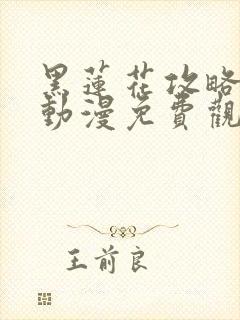 黑蓮花攻略
動漫免費觀
王前良